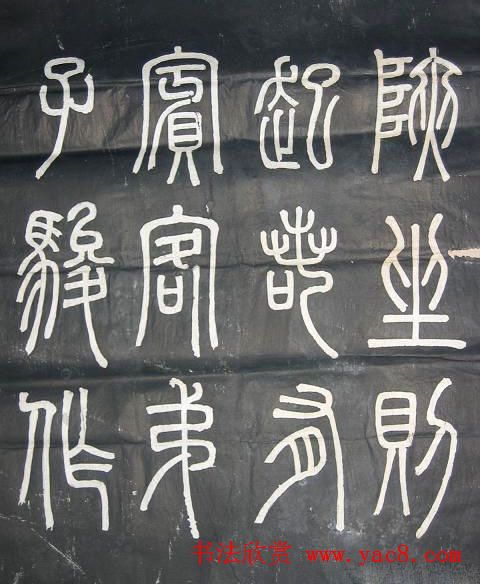 陜坐則
起若有
賓客弟
子駿作
书法欣赏 www.yac8.com